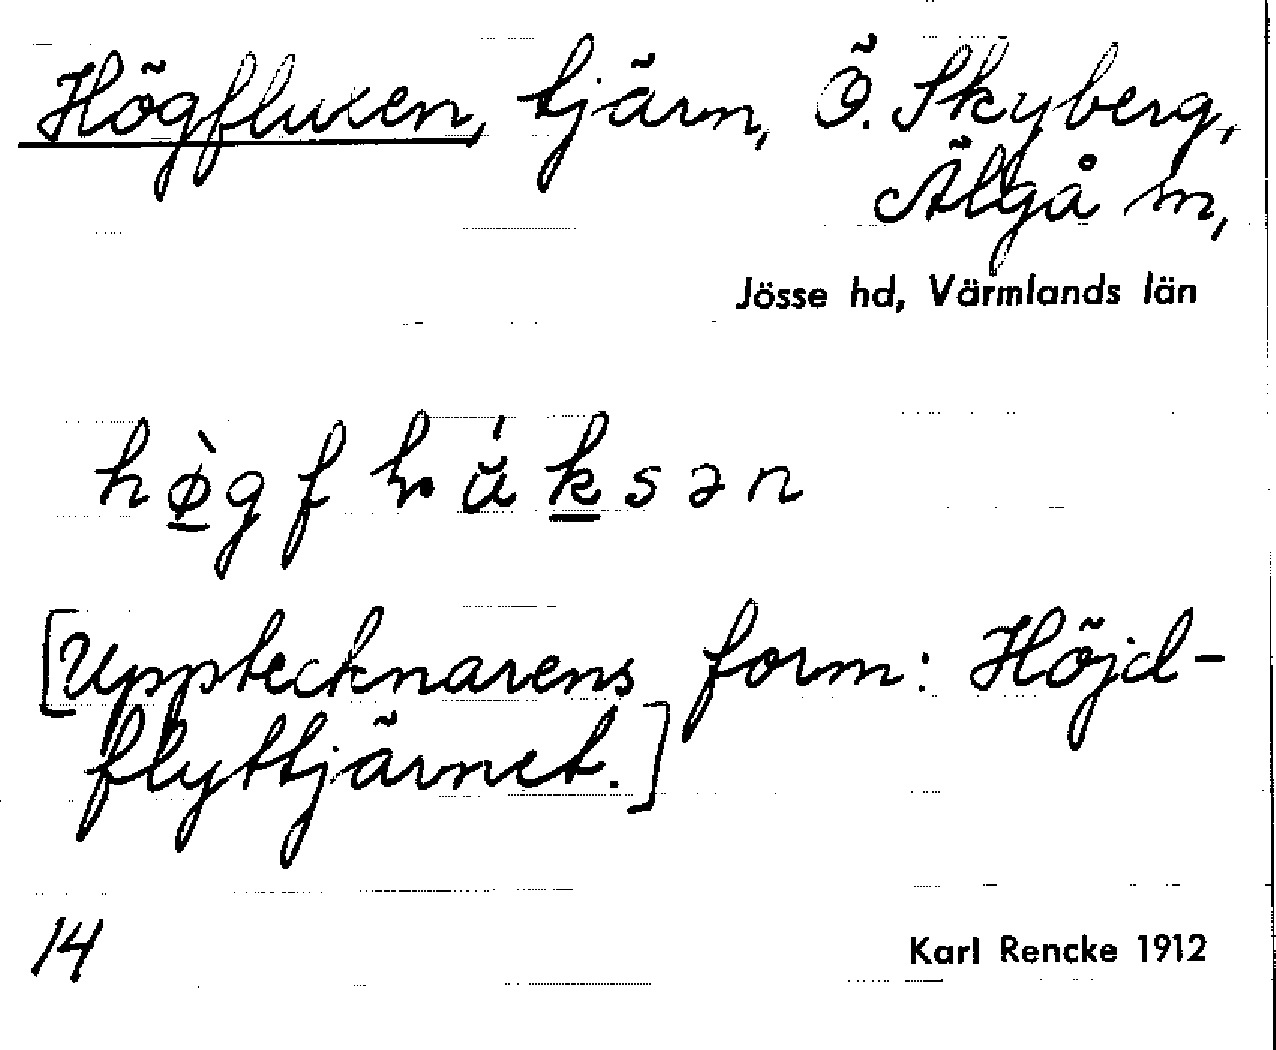 Högfluxen, tjärn, Ö. Skyberg,
Älgå sn,
Jösse hd, Värmlands län
[Upptecknarens form: Höjd-
flyttjärnet.]
14
Karl Rencke 1912